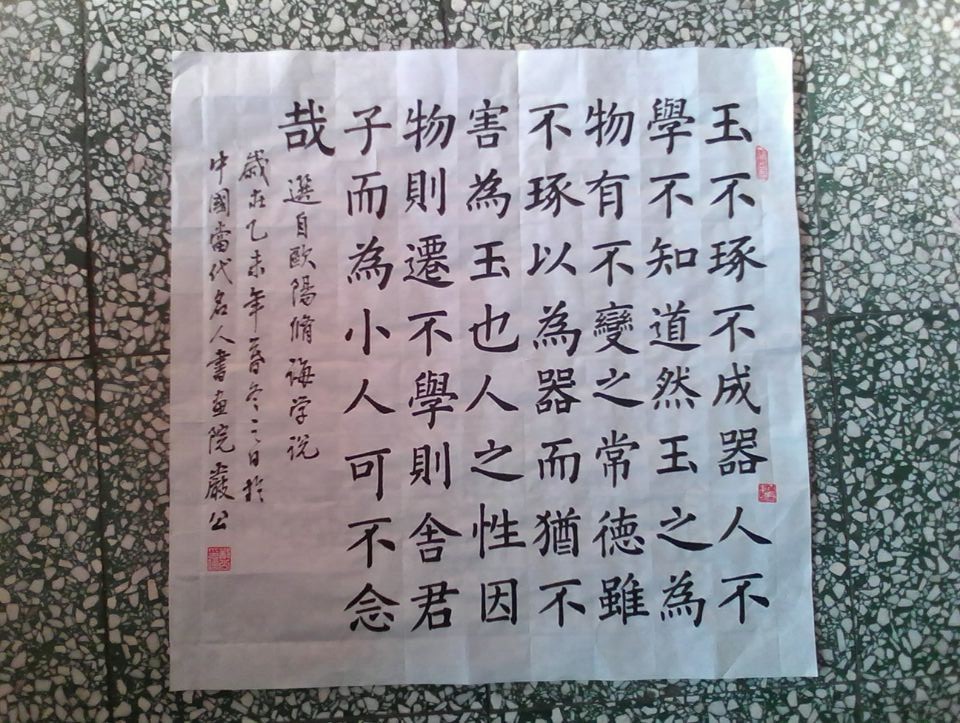 玉不琢不成器人不
學不知道然玉之為
物有不變之常德雖
不琢以為器而猶不
害為玉也人之性因
物則遷不學則舍君
子而為小人可不念
哉
選自歐陽脩誨学説
歲在乙未年暮冬之日於
中國當代名人書画院嚴公